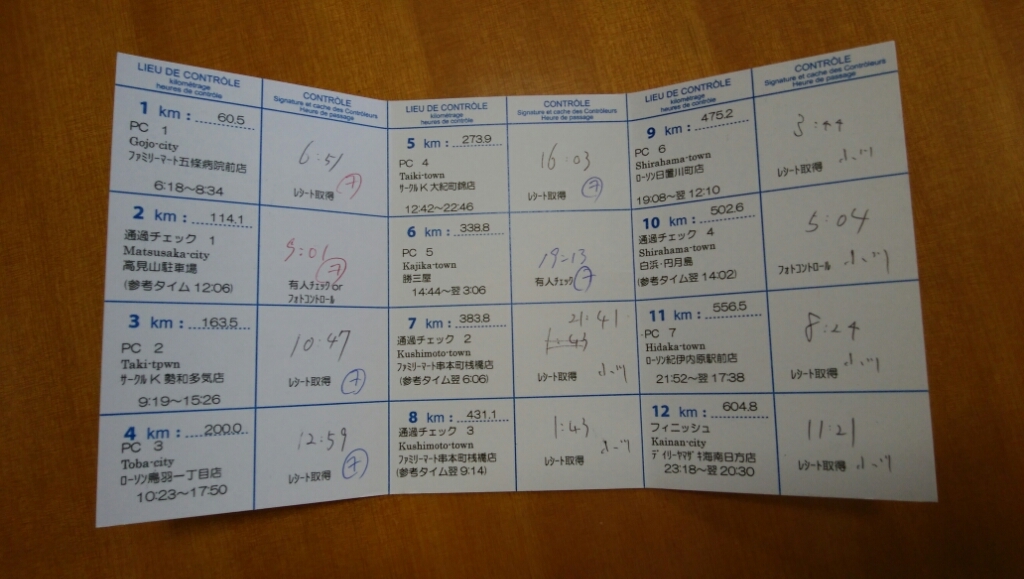 LIEU DE CONTRÔLE
kilométrage
heures de contrôle
CONTRÔLE
Signature et cache des Contrôleurs
Heure de passage
1 km : 60.5
PC 1
Gojo-city
ファミリーマート五條病院前店
6:18～8:34
6:51
レシート取得
2 km : 114.1
通過チェック 1
Matsusaka-city
高見山駐車場
(参考タイム 12:06)
9:01
有人チェック or
フォトコントロール
3 km : 163.5
PC 2
Taki-tpwn
サークルK 勢和多気店
9:19～15:26
10:47
レシート取得
4 km : 200.0
PC 3
Toba-city
ローソン鳥羽一丁目店
10:23～17:50
12:59
レシート取得
LIEU DE CONTRÔLE
kilométrage
heures de contrôle
CONTRÔLE
Signature et cache des Contrôleurs
Heure de passage
5 km : 273.9
PC 4
Taiki-town
サークルK 大紀町錦店
12:42～22:46
16:03
レシート取得
6 km : 338.8
PC 5
Kajika-town
勝三屋
14:44～翌 3:06
19:13
有人チェック
7 km : 383.8
通過チェック 2
Kushimoto-town
ファミリーマート串本町桟橋店
(参考タイム翌 6:06)
21:41
1:43
レシート取得
8 km : 431.1
通過チェック 3
Kushimoto-town
ファミリーマート串本町桟橋店
(参考タイム翌 9:14)
1:43
レシート取得
LIEU DE CONTRÔLE
kilométrage
heures de contrôle
CONTRÔLE
Signature et cache des Contrôleurs
Heure de passage
9 km : 475.2
PC 6
Shirahama-town
ローソン日置川町店
19:08～翌 12:10
3:44
レシート取得
10 km : 502.6
通過チェック 4
Shirahama-town
白浜・円月島
(参考タイム翌 14:02)
5:04
フォトコントロール
11 km : 556.5
PC 7
Hidaka-town
ローソン紀伊内原駅前店
21:52～翌 17:38
8:24
レシート取得
12 km : 604.8
フィニッシュ
Kainan-city
デイリーヤマザキ海南日方店
23:18～翌 20:30
11:21
レシート取得